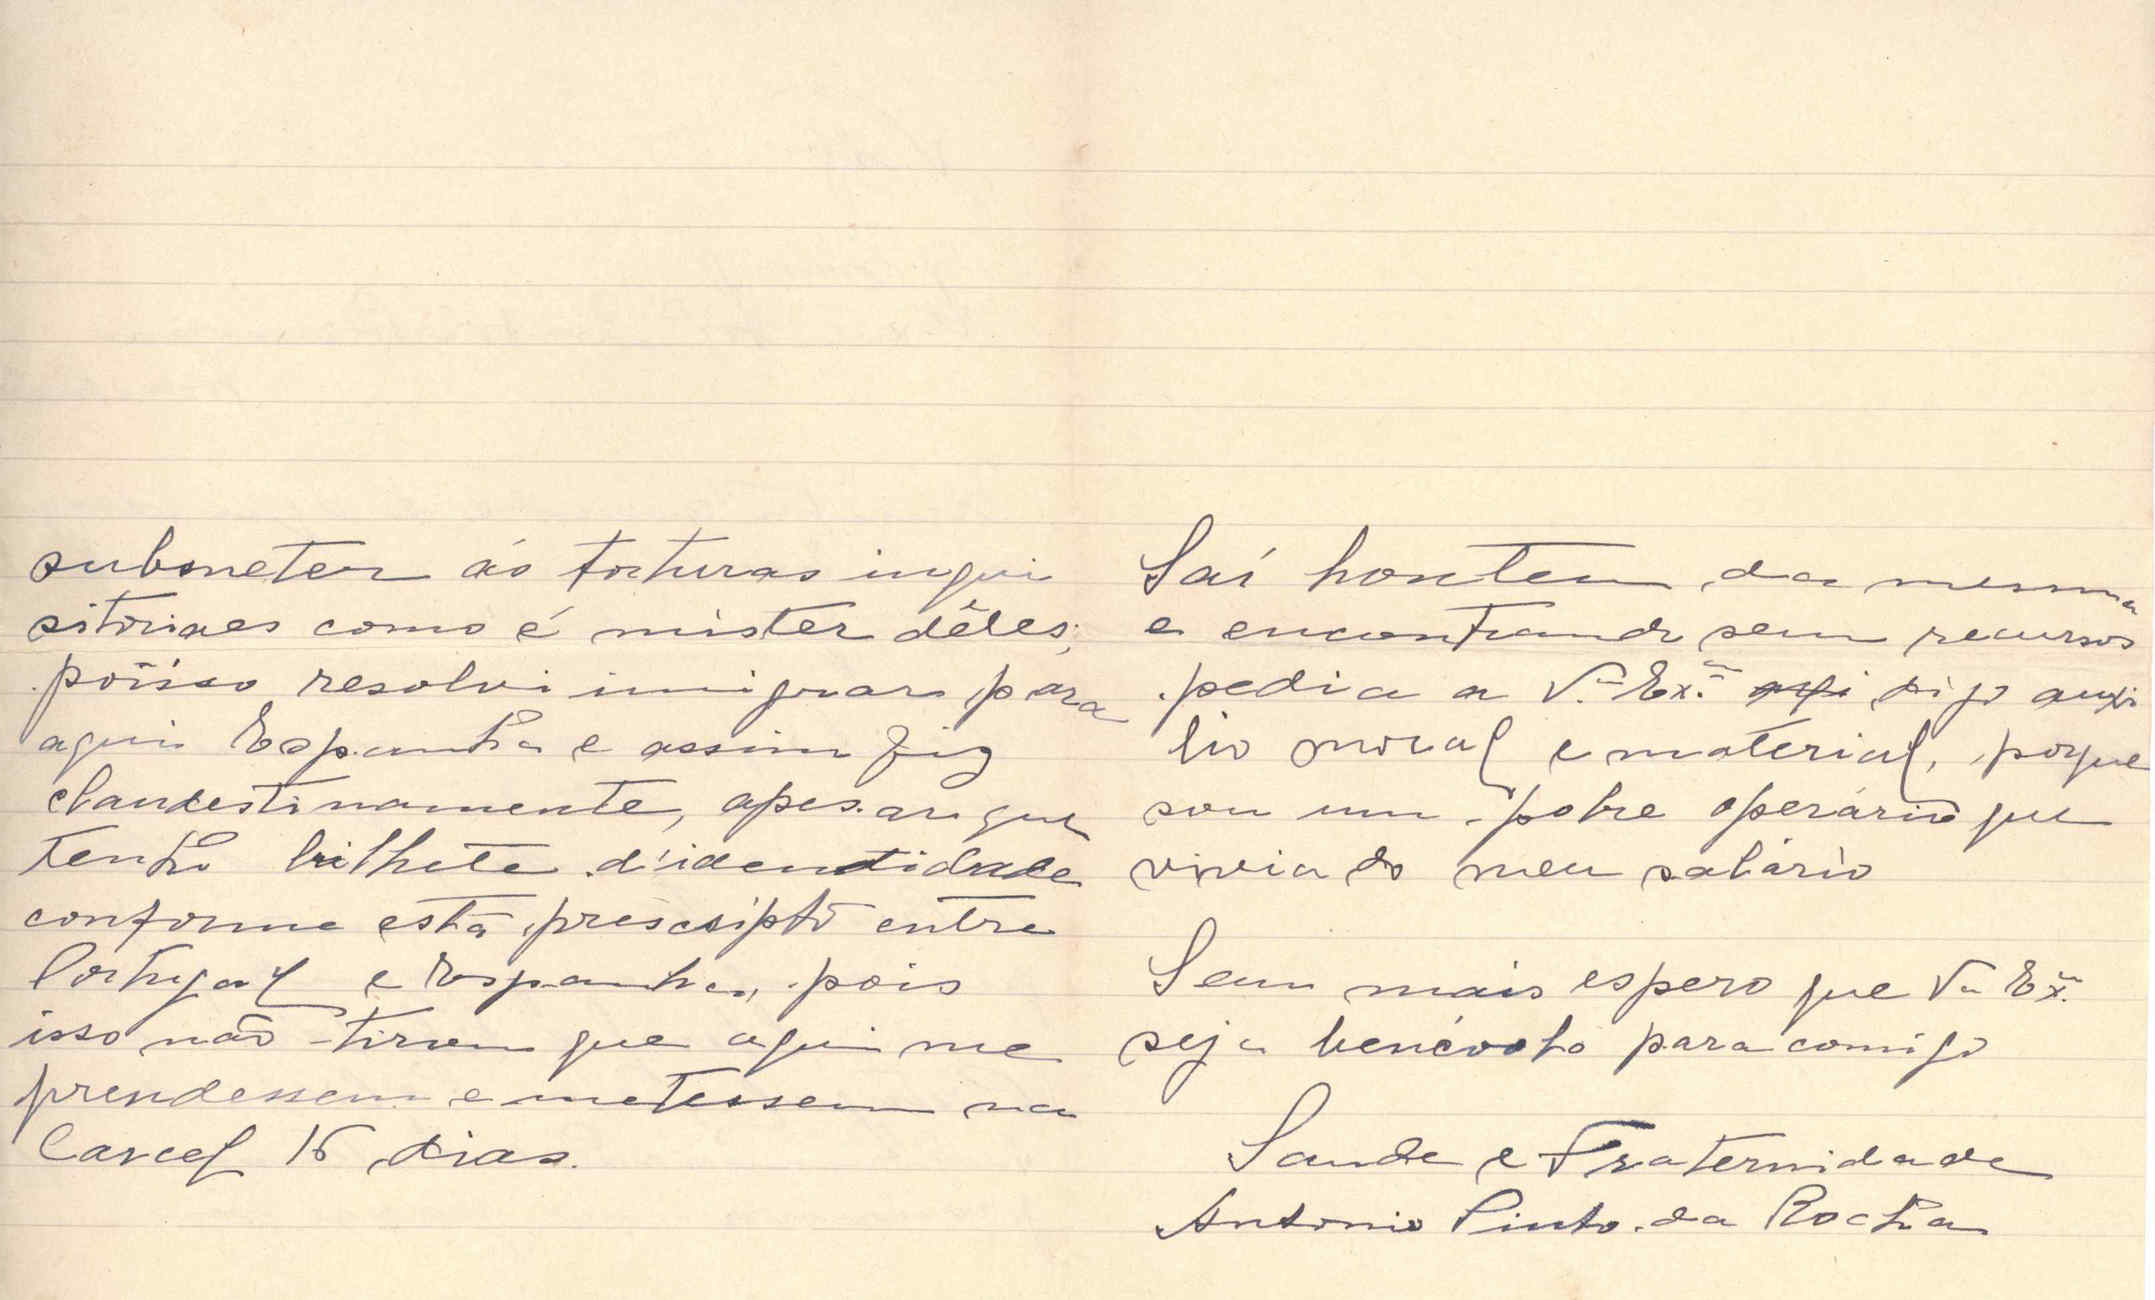 submeter ás torturas inqui
sitoriaes como é mister dêles;
poîsso resolvi imigrar para
aqui Espanha e assim fiz
clandestinamente, apesar que
tenho bilhete d'identidade
conforme está prescripto entre
Portugal e Espanha, pois
isso não tirou que aqui me
prendessem e metessem na
Carcel 15 dias.
Saí hontem da mesma
e encontrando sem recursos
pedia a V.ª Ex.ª digo auxi
lio moral e material, porque
sou um pobre operário que
vivia do meu salário
Sem mais espero que V.ª Ex.ª
seja benévolo para comigo
Saude e Fraternidade
Antonio Pinto da Rocha